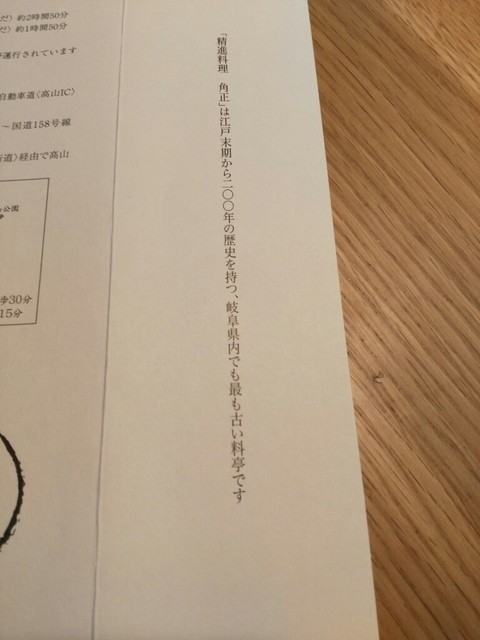 「精進料理　角正」は江戸末期から二〇〇年の歴史を持つ、岐阜県内でも最も古い料亭です
だ〉約2時間50分
だ〉約1時間50分
運行されています
自動車道〈高山IC〉
～国道158号線
道〉経由で高山
公園
歩30分
15分